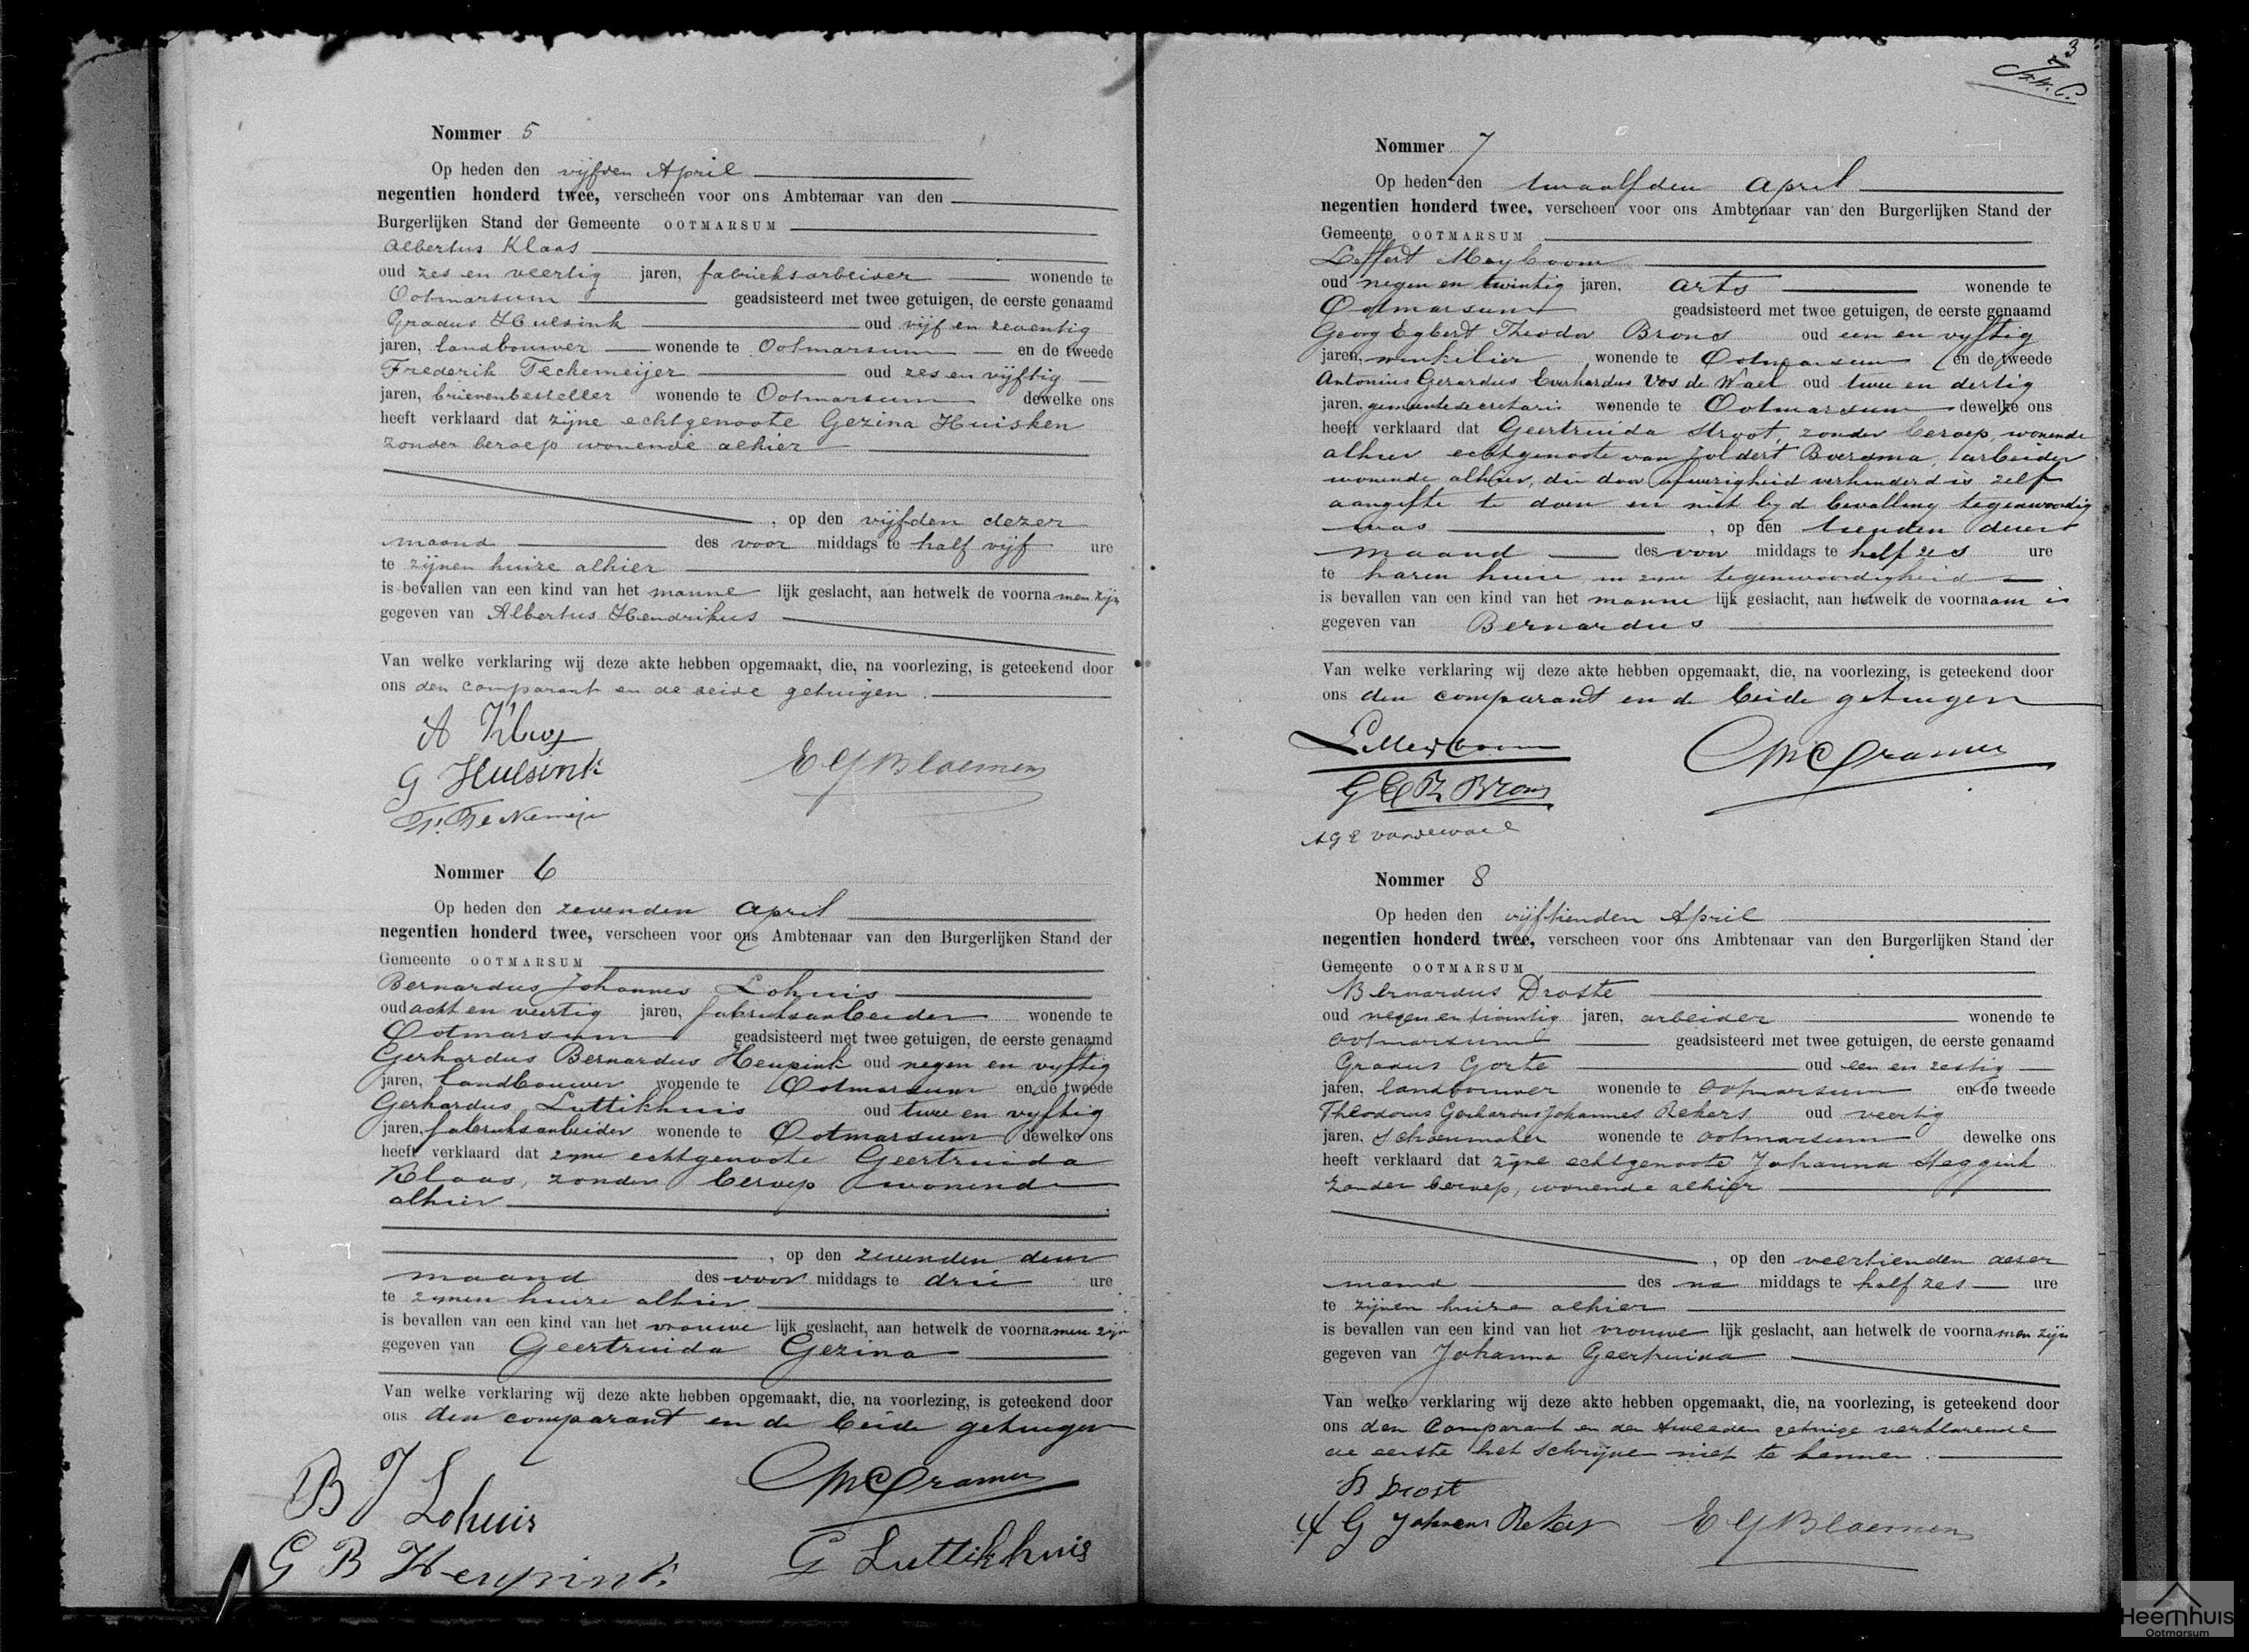 Nommer 5
Op heden den vijfden April
negentien honderd twee, verscheen voor ons Ambtenaar van den
Burgerlijken Stand der Gemeente OOTMARSUM
Albertus Klaas
oud zes en veertig jaren, fabrieksarbeider wonende te
Ootmarsum geadsisteerd met twee getuigen, de eerste genaamd
Gradus Hulsink oud vijf en zeventig
jaren, landbouwer wonende te Ootmarsum en de tweede
Frederik Teckemeijer oud zes en vijftig
jaren, brievenbesteller wonende te Ootmarsum dewelke ons
heeft verklaard dat zijne echtgenoote Gezina Huisken
zonder beroep wonende alhier
, op den vijfden dezer
maand des voor middags te half vijf ure
te zijnen huize alhier
is bevallen van een kind van het manne lijk geslacht, aan hetwelk de voornamen zijn
gegeven van Albertus Hendrikus
Van welke verklaring wij deze akte hebben opgemaakt, die, na voorlezing, is geteekend door
ons den comparant en de beide getuigen.
A Klaas
G Hulsink
E G Bloemen
Nommer 6
Op heden den zevenden April
negentien honderd twee, verscheen voor ons Ambtenaar van den Burgerlijken Stand der
Gemeente OOTMARSUM
Bernardus Johannes Lohuis
oud acht en veertig jaren, fabrieksarbeider wonende te
Ootmarsum geadsisteerd met twee getuigen, de eerste genaamd
Gerhardus Bernardus Heupink oud negen en vyftig
jaren, landbouwer wonende te Ootmarsum en de tweede
Gerhardus Luttikhuis oud twee en vyftig
jaren, fabrieksarbeider wonende te Ootmarsum dewelke ons
heeft verklaard dat zyne echtgenoote Geertruida
Klaas, zonder beroep wonende
alhier
, op den zevenden dezer
maand des voor middags te drie ure
te zynen huize alhier
is bevallen van een kind van het vrouwe lijk geslacht, aan hetwelk de voornamen zijn
gegeven van Geertruida Gezina
Van welke verklaring wij deze akte hebben opgemaakt, die, na voorlezing, is geteekend door
ons den comparant en de beide getuigen
B J Lohuis
Cramer
G B Heupink
G Luttikhuis
3
Nommer 7
Op heden den twaalfden April
negentien honderd twee, verscheen voor ons Ambtenaar van den Burgerlijken Stand der
Gemeente OOTMARSUM
Leffert Meyboom
oud negen en twintig jaren, arts wonende te
Ootmarsum geadsisteerd met twee getuigen, de eerste genaamd
Georg Egbert Theodor Brons oud een en vyftig
jaren, winkelier wonende te Ootmarsum en de tweede
Antonius Gerardus Everhardus Vos de Wael oud twee en dertig
jaren, gemeentesecretaris wonende te Ootmarsum dewelke ons
heeft verklaard dat Geertruida Stroot, zonder beroep, wonende
alhier echtgenoote van Joldert Boersma, arbeider
wonende alhier, die door afwezigheid verhinderd is zelf
aangifte te doen en niet by de bevalling tegenwoordig
was , op den tienden dezer
maand des voor middags te half zes ure
te haren huize in zyne tegenwoordigheid
is bevallen van een kind van het manne lijk geslacht, aan hetwelk de voornaam is
gegeven van Bernardus
Van welke verklaring wij deze akte hebben opgemaakt, die, na voorlezing, is geteekend door
ons den comparant en de beide getuigen
L Meyboom
Cramer
G E Th Brons
A G E Vosdewael
Nommer 8
Op heden den vijftienden April
negentien honderd twee, verscheen voor ons Ambtenaar van den Burgerlijken Stand der
Gemeente OOTMARSUM
Bernardus Droste
oud negen en twintig jaren, arbeider wonende te
Ootmarsum geadsisteerd met twee getuigen, de eerste genaamd
Gradus Gorte oud een en zestig
jaren, landbouwer wonende te Ootmarsum en de tweede
Theodorus Gerhardus Johannes Rekers oud veertig
jaren, schoenmaker wonende te Ootmarsum dewelke ons
heeft verklaard dat zijne echtgenoote Johanna Steggink
zonder beroep, wonende alhier
, op den veertienden dezer
maand des na middags te half zes ure
te zijnen huize alhier
is bevallen van een kind van het vrouwe lijk geslacht, aan hetwelk de voornamen zijn
gegeven van Johanna Geertruida
Van welke verklaring wij deze akte hebben opgemaakt, die, na voorlezing, is geteekend door
ons den Comparant en den tweeden getuige verklarende
de eerste het schrijven niet te kennen.
B Drost
G Johannes Rekers
E G Bloemen
Heemhuis
Ootmarsum